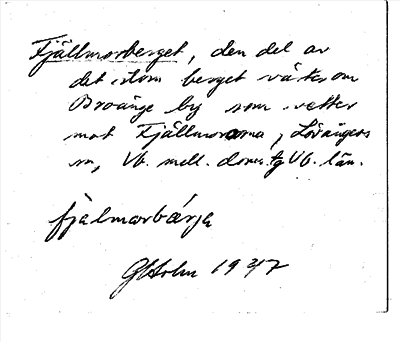 Fjällmorberget, den del av
det stora berget väster om
Broänge by som vetter
mot Fjällmorarna, Lövångers
sn, Vb. mell. doms. Vb. län.
fjälmorbärja
GHolm 1947